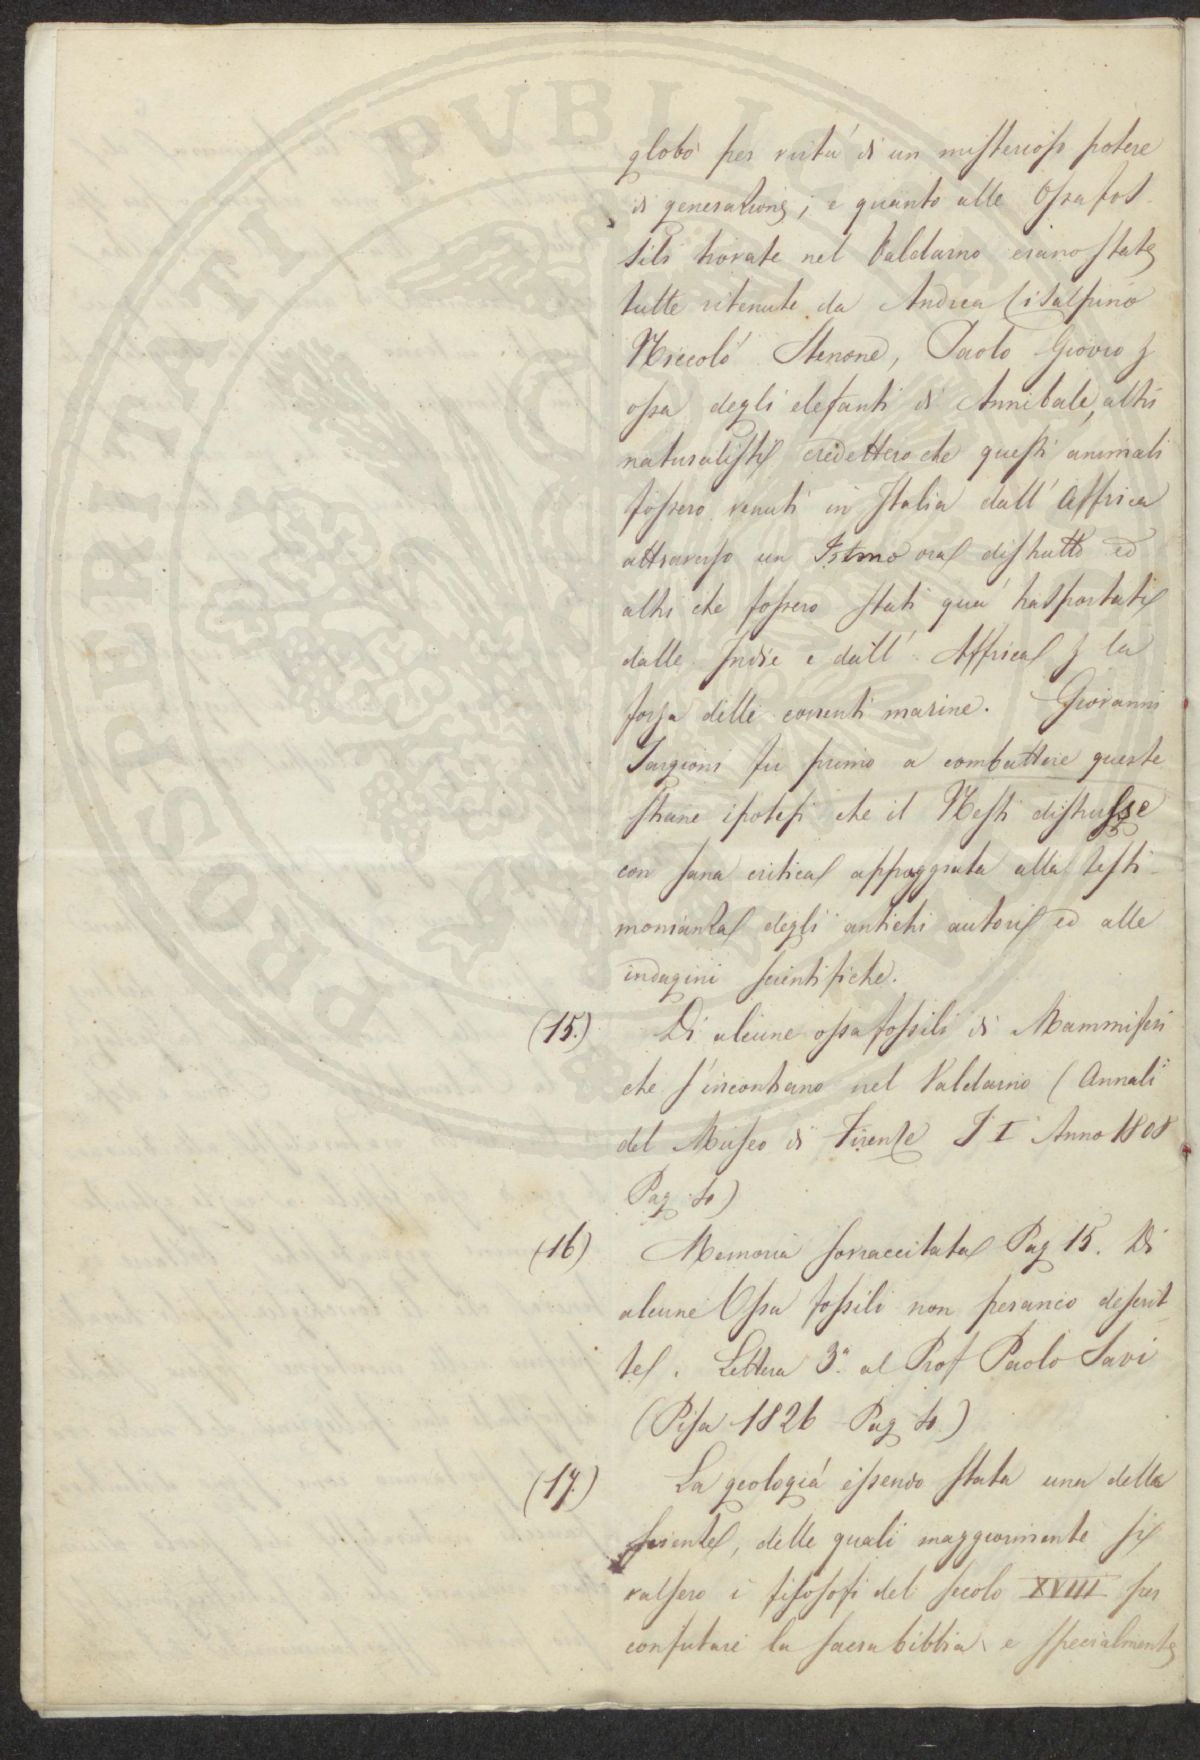 PROSPERITATI PVBLICAE
globo per virtù di un misterioso potere
di generazione; e quanto alle Ossa fos-
sili trovate nel Valdarno erano state
tutte ritenute da Andrea Cisalpino
Niccolò Stenone, Paolo Giovio p
ossa degli elefanti di Annibale, altri
naturalisti credettero che questi animali
fossero venuti in Italia dall' Affrica
attraverso un Istmo ora distrutto ed
altri che fossero stati qua trasportati
dalle Indie e dall' Affrica p la
forza delle correnti marine. Giovanni
Targioni fu primo a combattere queste
strane ipotesi che il Nesti distrusse
con sana critica appoggiata alla testi-
monianza degli antichi autori ed alle
indagini scientifiche.
(15.) Di alcune ossa fossili di Mammiferi
che s'incontrano nel Valdarno (Annali
del Museo di Firenze T I Anno 1808
Pag. )
(16) Memoria sorraccitata Pag 15. Di
alcune Ossa fossili non peranco descrit-
te. Lettera 3ª al Prof Paolo Savi
(Pisa 1826 Pag )
(17.) La geologia essendo stata una della
scienze, delle quali maggiormente si
valsero i filosofi del secolo XVIII per
confutare la sacra bibbia e specialmente